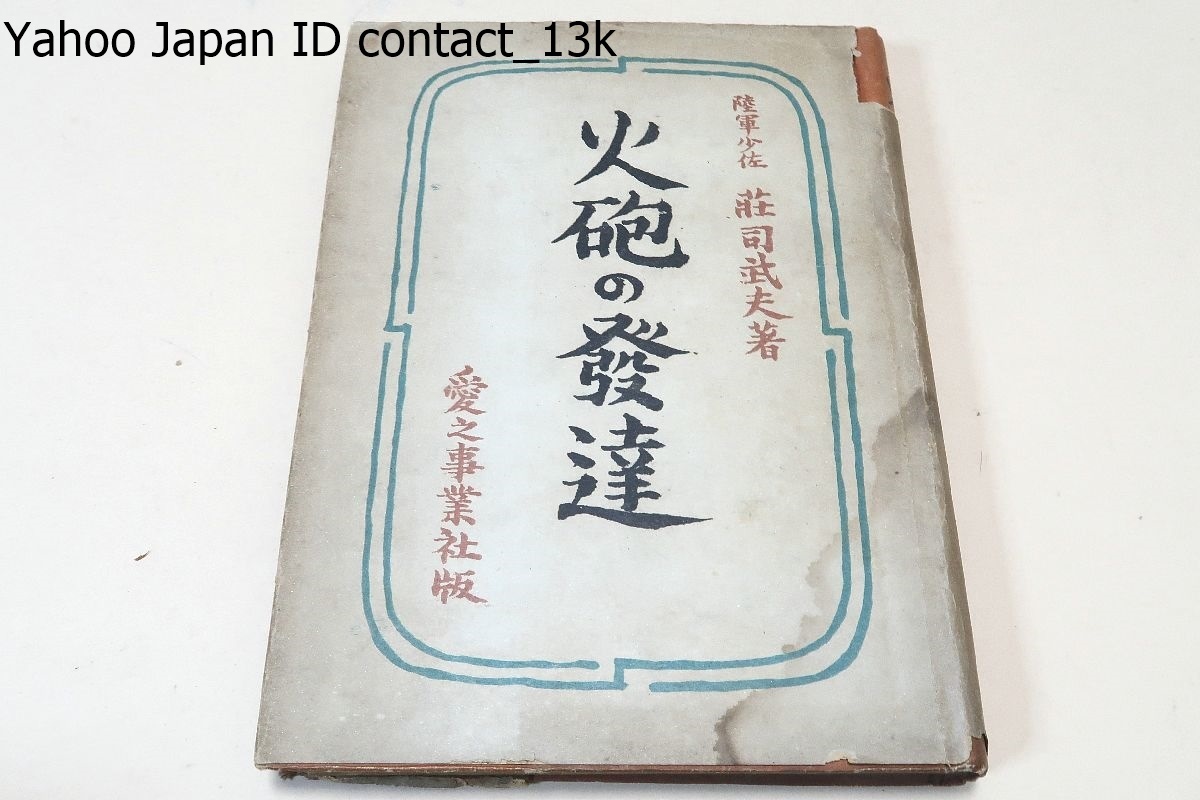 Yahoo Japan ID contact_13k
陸軍少佐 莊司武夫著
火砲の發達
愛之事業社版